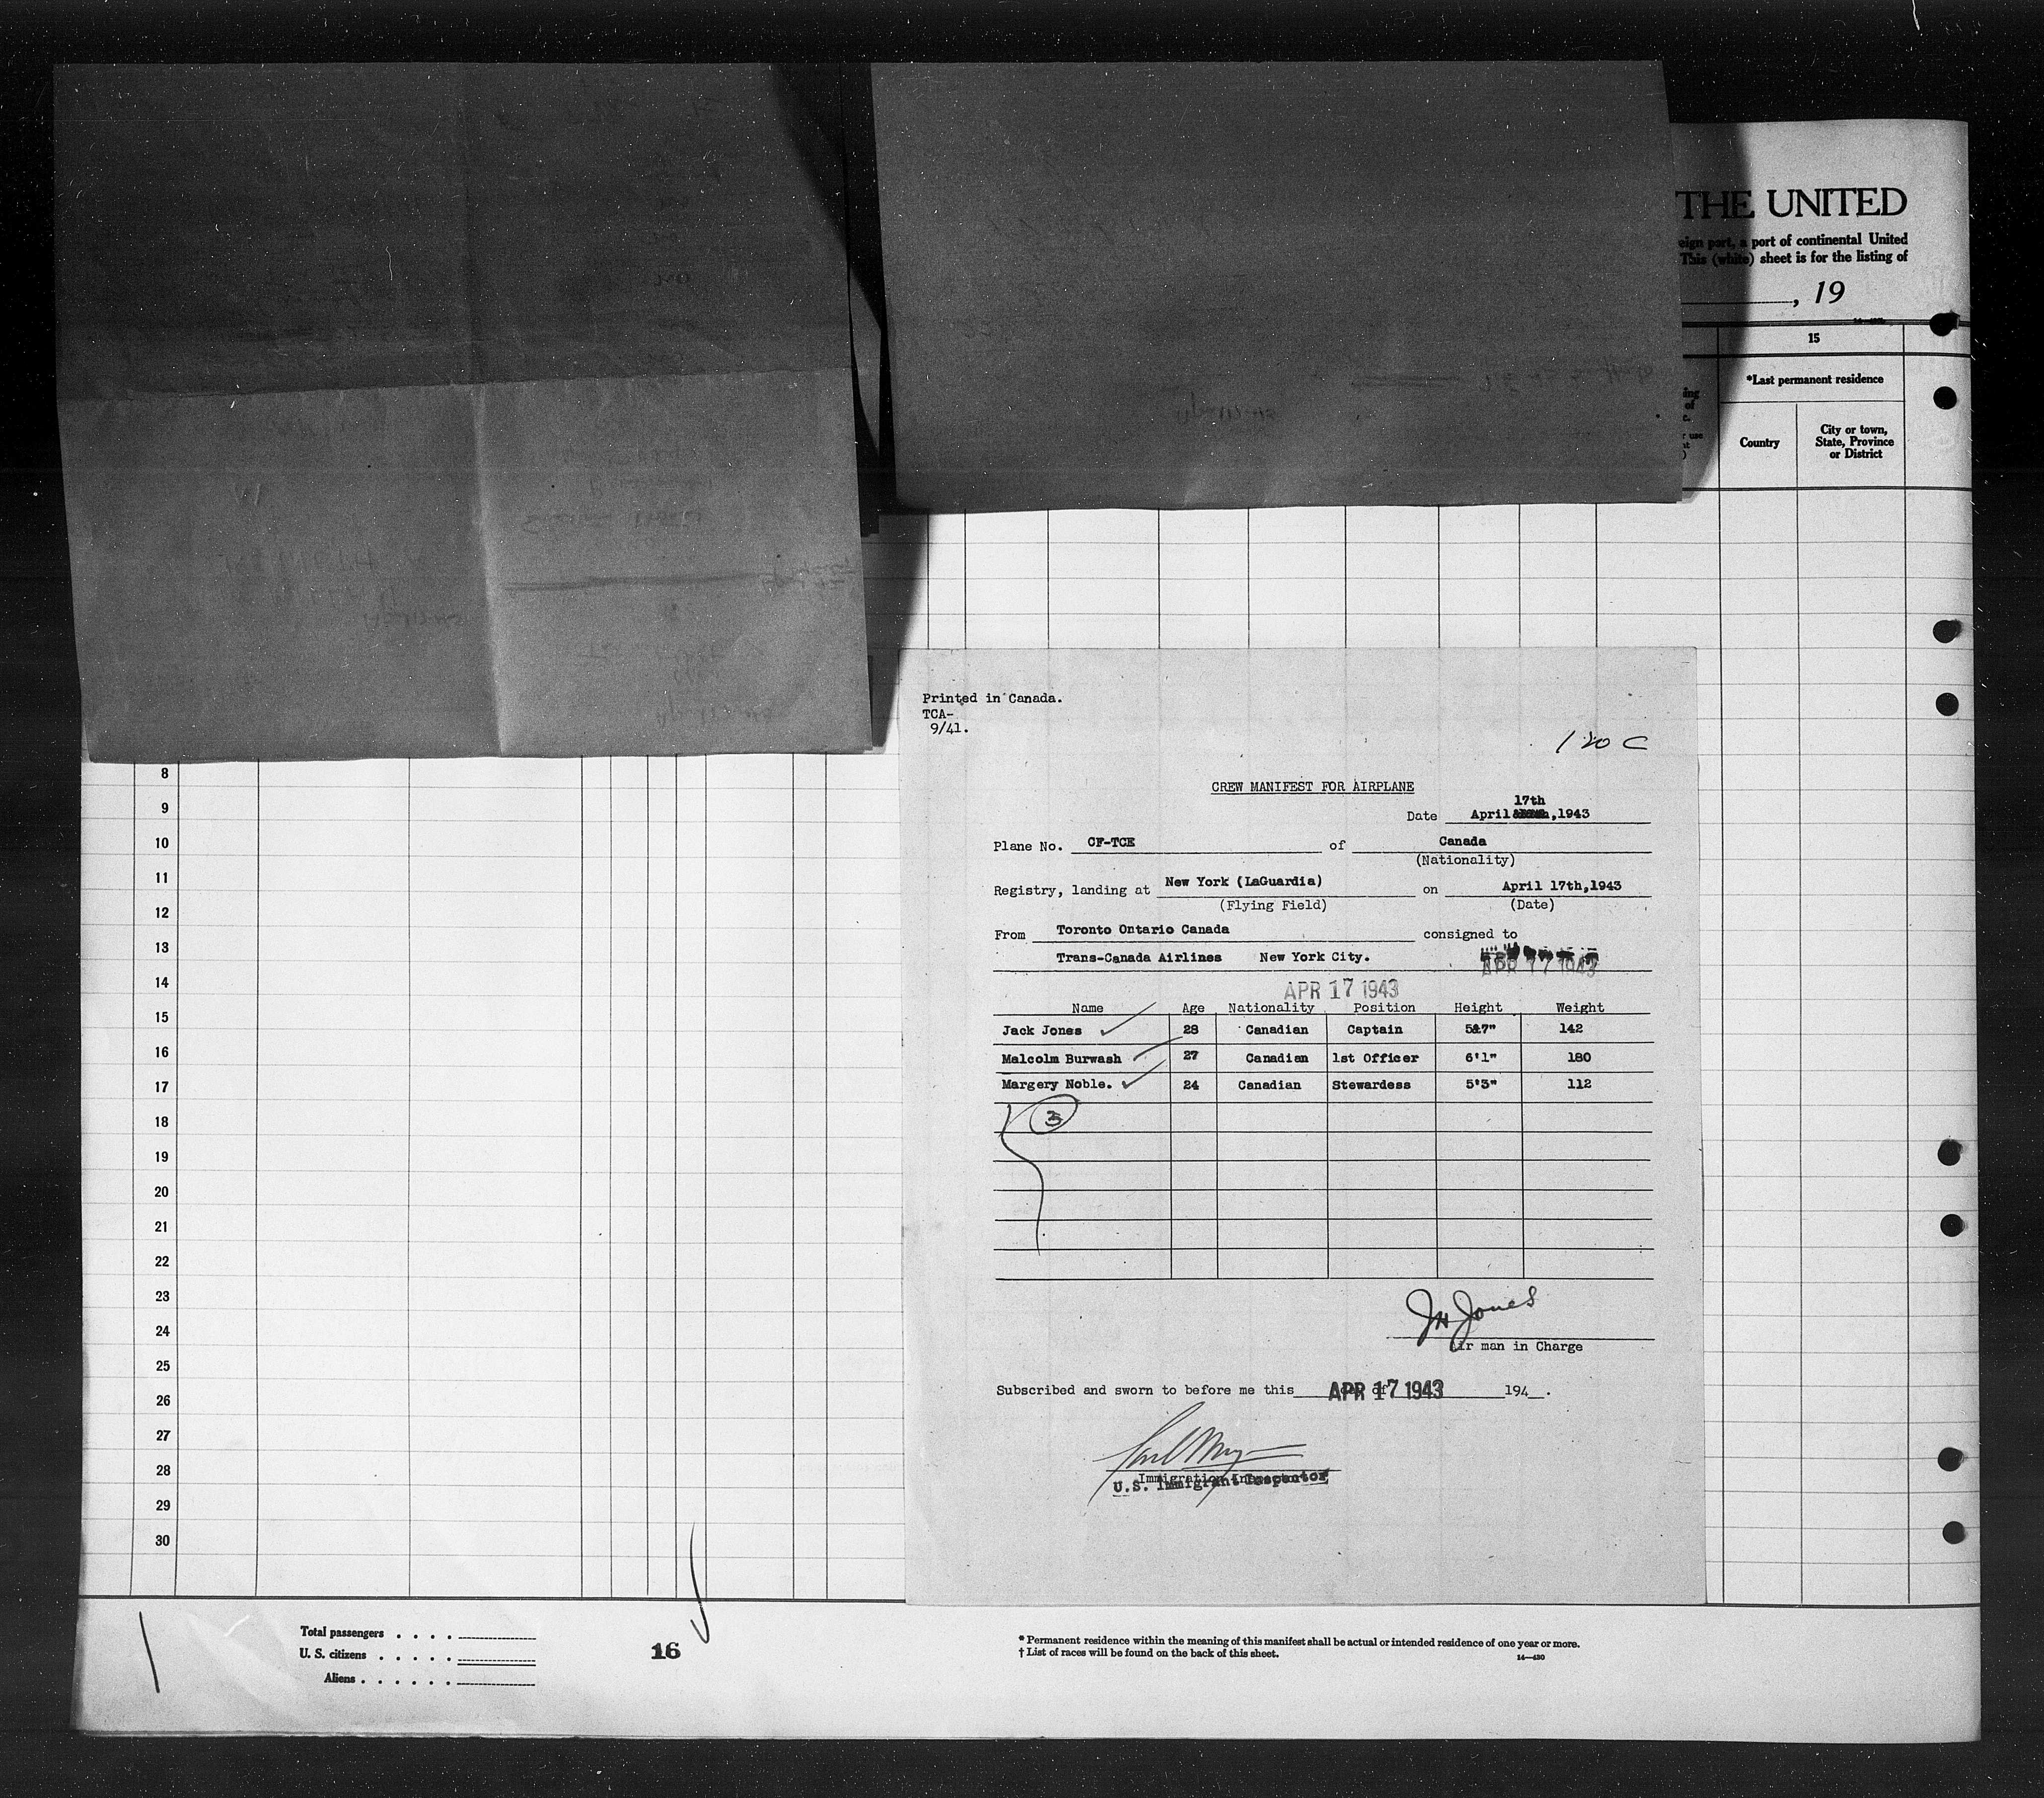 THE UNITED
port of continental United
This (white) sheet is for the listing of
, 19
15
*Last permanent residence
Country
City or town,
State, Province
or District
Printed in Canada.
TCA-
9/41.
120 C
CREW MANIFEST FOR AIRPLANE
17th
Date April ,1943
Plane No. CF-TCE of Canada
(Nationality)
Registry, landing at New York (LaGuardia) on April 17th,1943
(Flying Field) (Date)
From Toronto Ontario Canada consigned to
Trans-Canada Airlines New York City.
APR 17 1943
APR 17 1943
Name Age Nationality Position Height Weight
Jack Jones 28 Canadian Captain 5&7" 142
Malcolm Burwash 27 Canadian 1st Officer 6'1" 180
Margery Noble. 24 Canadian Stewardess 5'3" 112
3
JH Jones
Air man in Charge
Subscribed and sworn to before me this day of APR 17 1943 194 .
Immigration Inspector
U.S. Immigrant Inspector
8
9
10
11
12
13
14
15
16
17
18
19
20
21
22
23
24
25
26
27
28
29
30
Total passengers . . . .
U. S. citizens . . . . .
Aliens . . . . . .
16
* Permanent residence within the meaning of this manifest shall be actual or intended residence of one year or more.
† List of races will be found on the back of this sheet.
14—430